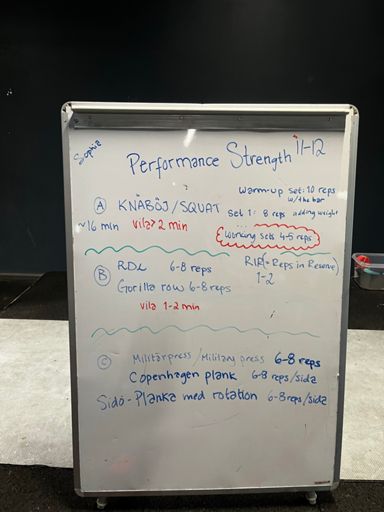 Sophie
Performance Strength 11-12
Warm-up set: 10 reps
w/the bar
A KNÄBÖJ/SQUAT set 1: 8 reps adding weight
...
~16 min vila> 2 min Working sets 4-5 reps
B RDL 6-8 reps RIR(=Reps in Reserve)
1-2
Gorilla row 6-8 reps
vila 1-2 min
C Militärpress/Military press 6-8 reps
Copenhagen plank 6-8 reps/sida
Sido-Planka med rotation 6-8 reps/sida